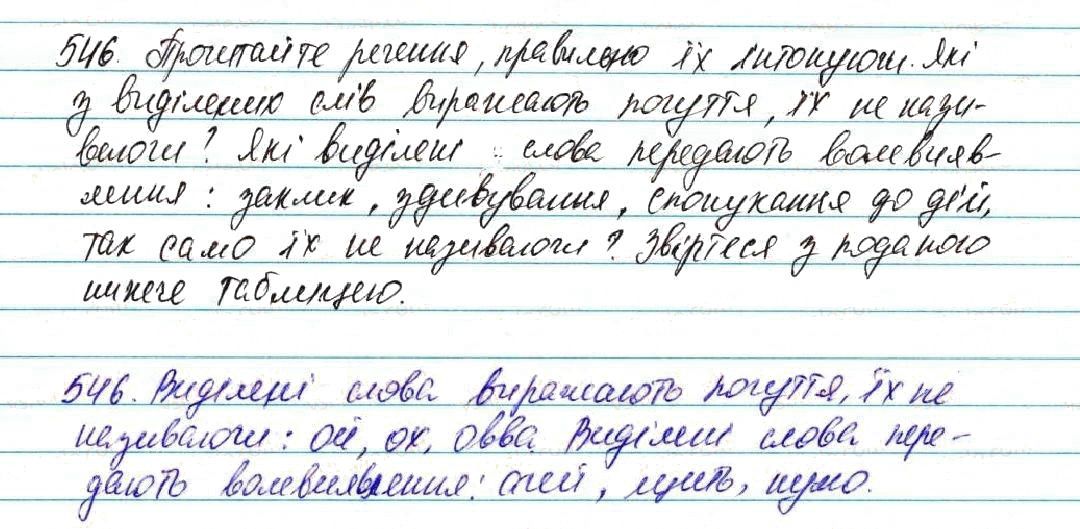 546. Прочитайте речення, правильно їх інтонуючи. Які
з виділених слів виражають почуття, їх не нази-
ваючи? Які виділені слова передають волевияв-
лення: заклик, здивування, спонукання до дій,
так само їх не називаючи? Звіртеся з поданою
нижче таблицею.
546. Виділені слова виражають почуття, їх не
називаючи: ой, ох, овва. Виділені слова пере-
дають волевиявлення: агей, цить, нумо.